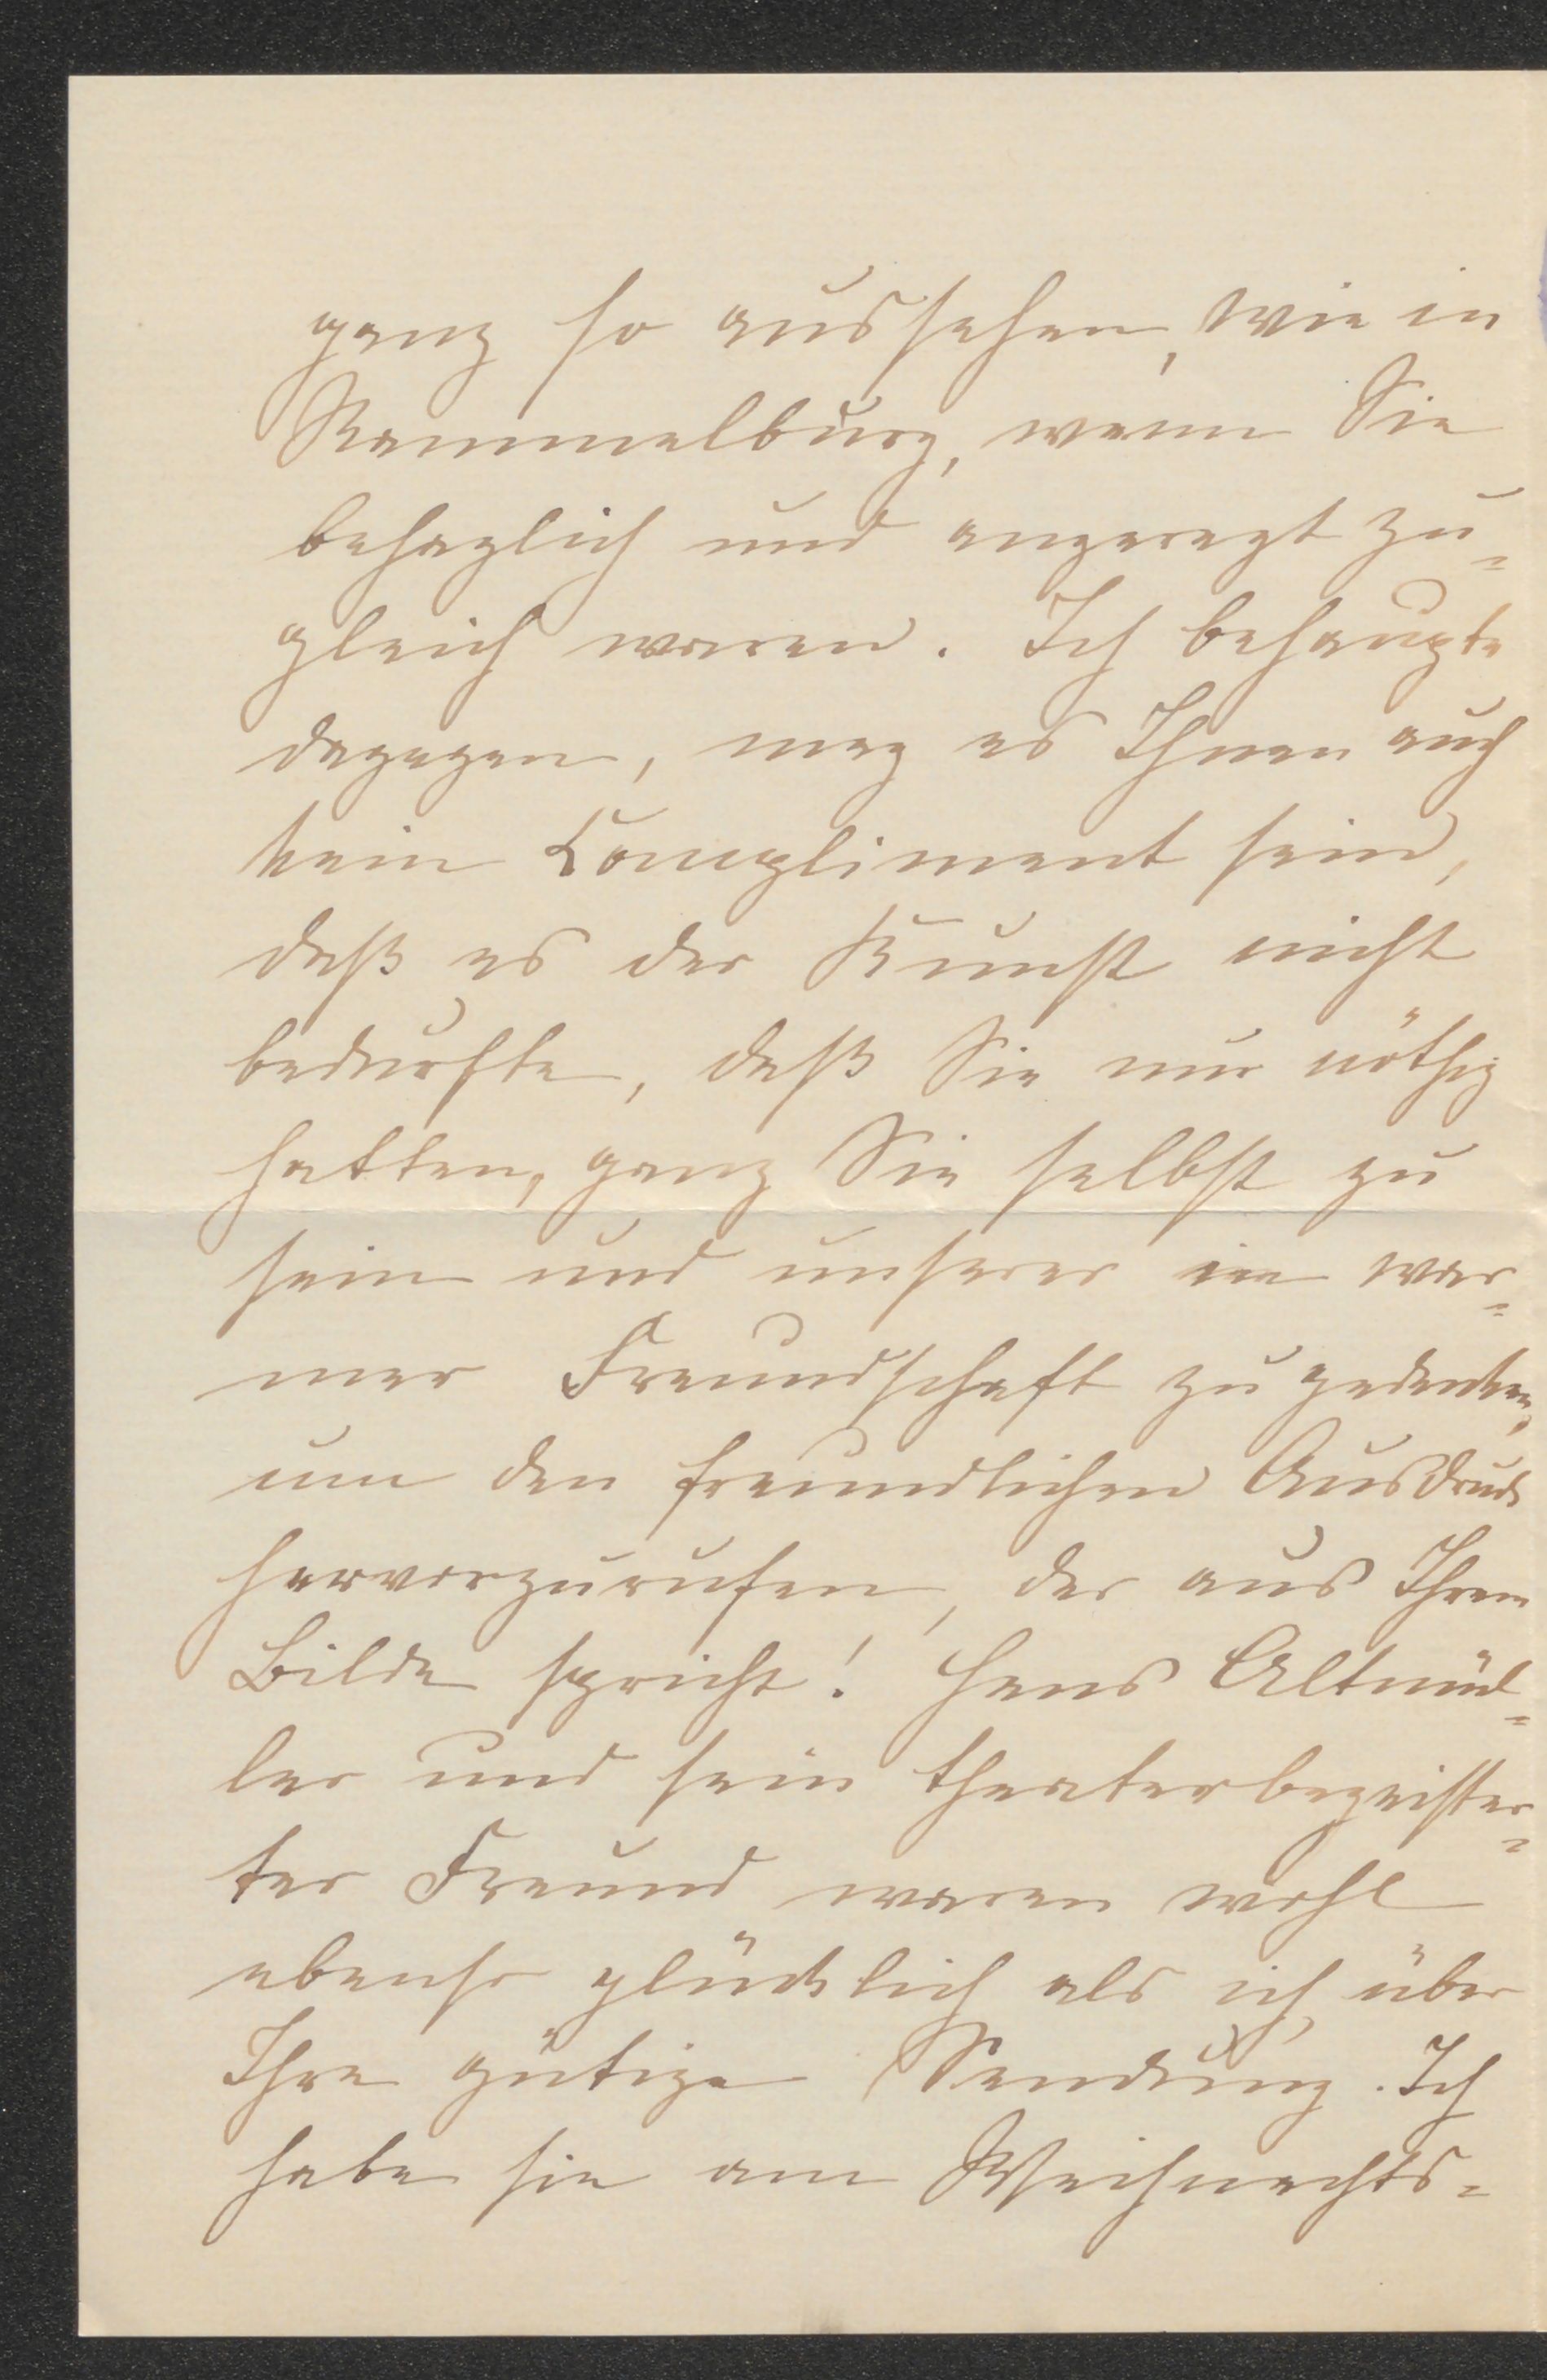 ganz so aussehen, wie in
Rammelburg, wenn Sie
behaglich und angeregt zu-
gleich waren. Ich behaupte
dagegen, mag es Ihnen auch
kein Compliment sein,
daß es der Kunst nicht
bedurfte, daß Sie nur nöthig
hatten, ganz Sie selbst zu
sein und unserer in war-
mer Freundschaft zu gedenken,
um den freundlichen Ausdruck
hervorzurufen, der aus Ihrem
Bilde spricht! Hans Altmül-
ler und sein theaterbegeister-
ter Freund waren wohl
ebenso glücklich als ich, über
Ihre gütige Sendung. Ich
habe sie am Weihnachts-